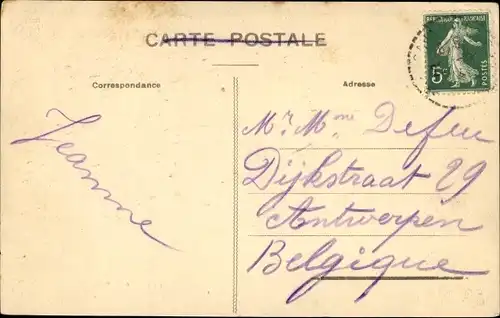 CARTE POSTALE
Correspondance
Adresse
RÉPUBLIQUE FRANÇAISE
5c
POSTES
Jeanne
Mr Mme
Dijkstraat 29
Antwerpen
Belgique